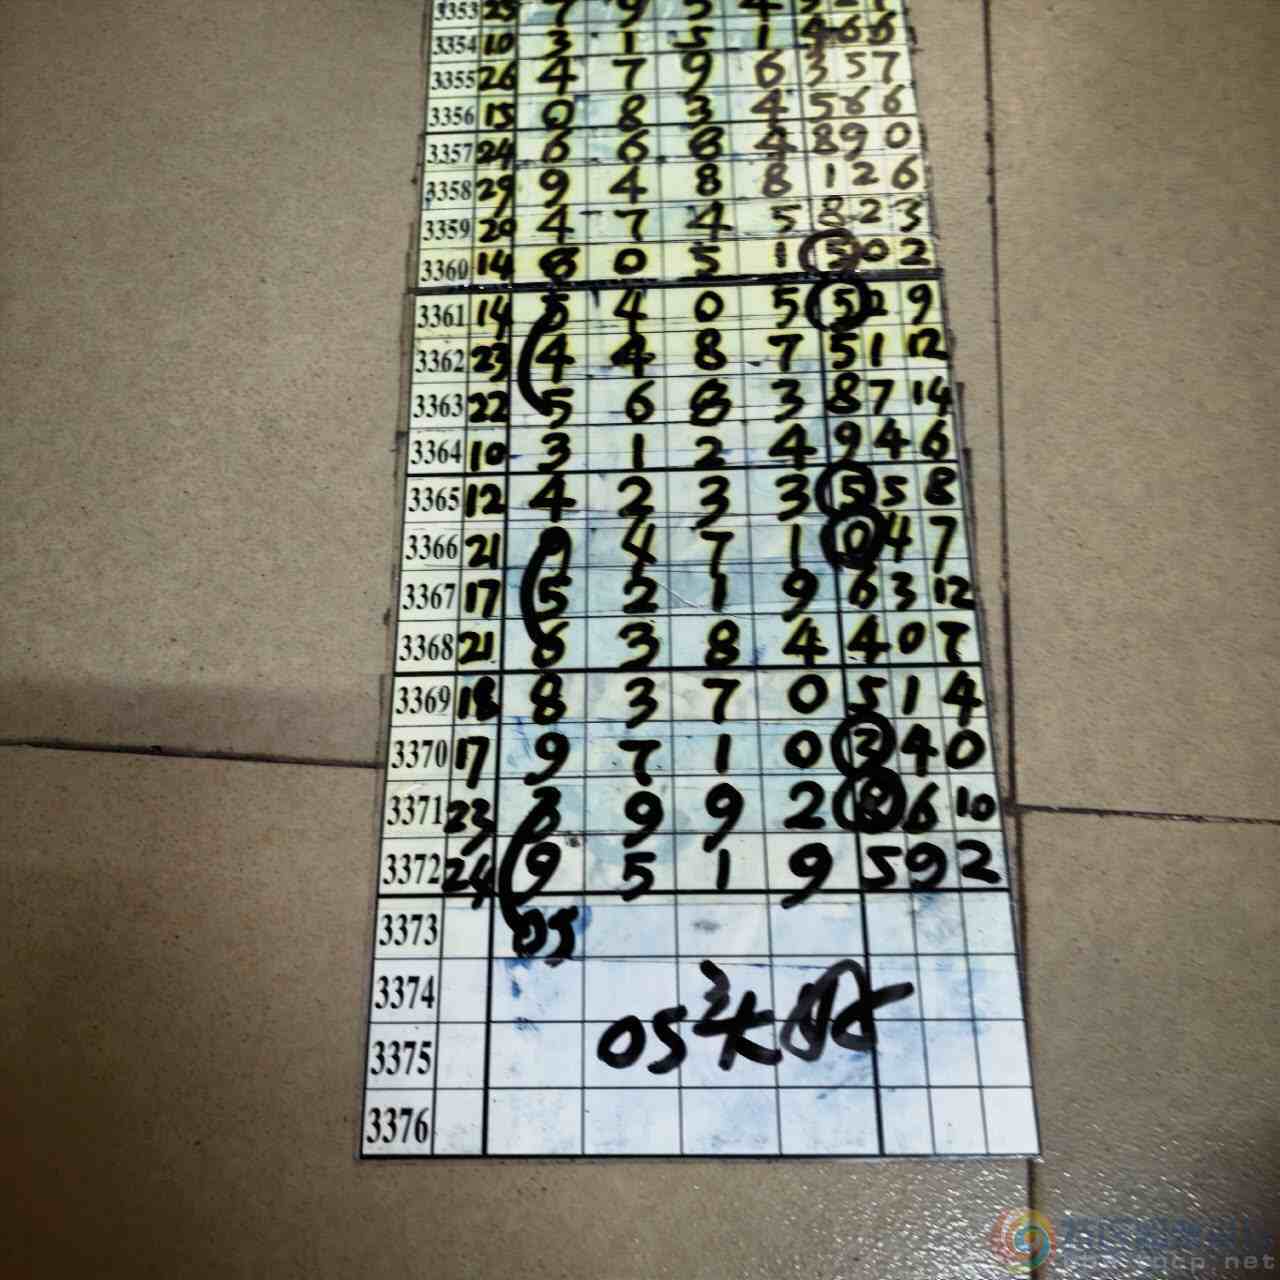 3353 25 7 9 5 4
3354 10 3 1 5 1 4 6 6
3355 26 4 7 9 6 3 5 7
3356 15 0 8 3 4 5 6 6
3357 24 6 6 8 4 8 9 0
3358 29 9 4 8 8 1 2 6
3359 20 4 7 4 5 8 2 3
3360 14 8 0 5 1 5 0 2
3361 14 5 4 0 5 5 2 9
3362 23 4 4 8 7 5 1 12
3363 22 5 6 8 3 8 7 14
3364 10 3 1 2 4 9 4 6
3365 12 4 2 3 3 5 5 8
3366 21 9 4 7 1 0 4 7
3367 17 5 2 1 9 6 3 12
3368 21 6 3 8 4 4 0 7
3369 18 8 3 7 0 5 1 4
3370 17 9 7 1 0 3 4 0
3371 23 3 9 9 2 8 6 10
3372 24 9 5 1 9 5 9 2
3373 05
3374
05
3375
3376